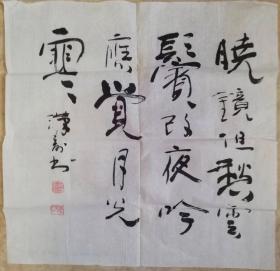 曉鏡但愁雲
鬢改夜吟
應覺月光
寒
書